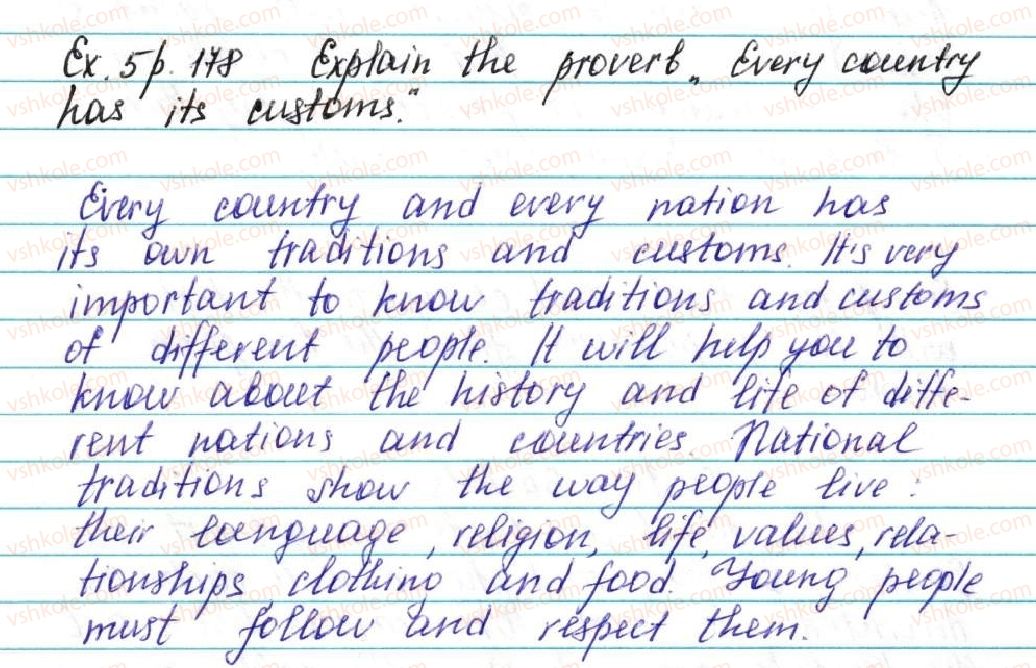 Ex. 5 p. 178 Explain the proverb „Every country
has its customs."
Every country and every nation has
its own traditions and customs. It's very
important to know traditions and customs
of different people. It will help you to
know about the history and life of diffe-
rent nations and countries. National
traditions show the way people live:
their language, religion, life, values, rela-
tionships, clothing and food. Young people
must follow and respect them.